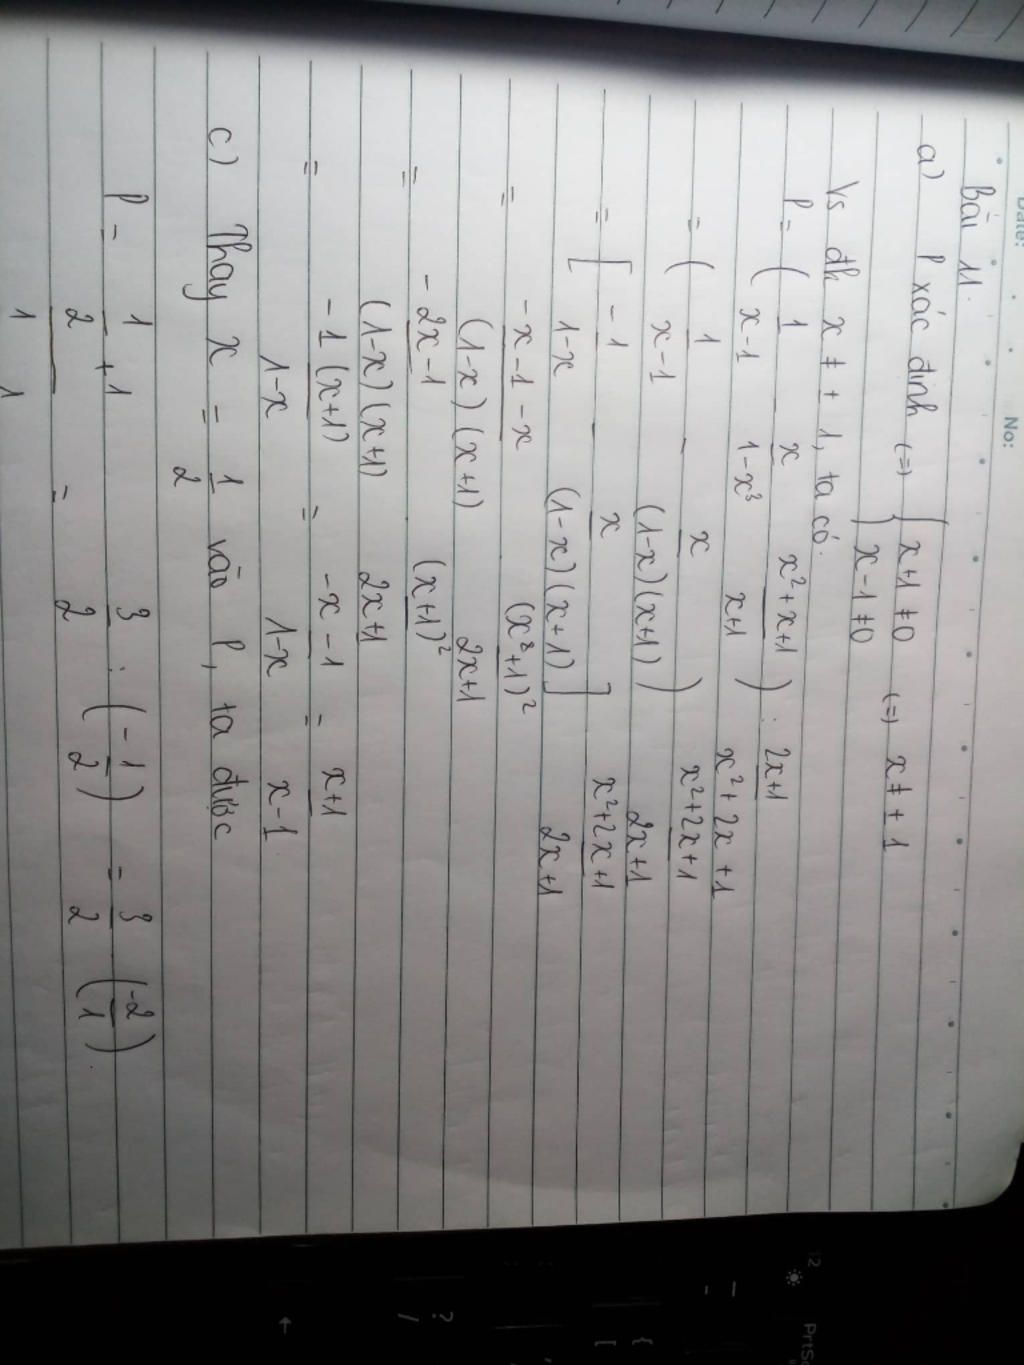 Date: No:
Bài 11.
a) P xác định (=) { x+1 ≠ 0 (=) x ≠ ± 1
x - 1 ≠ 0
Vs đk x ≠ ± 1, ta có.
P = ( 1/(x-1) - x/(1-x³) · (x²+x+1)/(x+1) ) : (2x+1)/(x²+2x+1)
= ( 1/(x-1) - x/((1-x)(x+1)) ) · (x²+2x+1)/(2x+1)
= [ -1/(1-x) - x/((1-x)(x+1)) ] · (x²+2x+1)/(2x+1)
= (-x-1-x)/((1-x)(x+1)) · (x+1)²/(2x+1)
= (-2x-1)/((1-x)(x+1)) · (x+1)²/(2x+1)
= (-1(x+1))/(1-x) = (-x-1)/(1-x) = (x+1)/(x-1)
c) Thay x = 1/2 vào P, ta được
P = (1/2 + 1)/ = 3/2 : (-1/2) = 3/2 · (-2/1).
1 1
12 PrtSc
{ [
? /